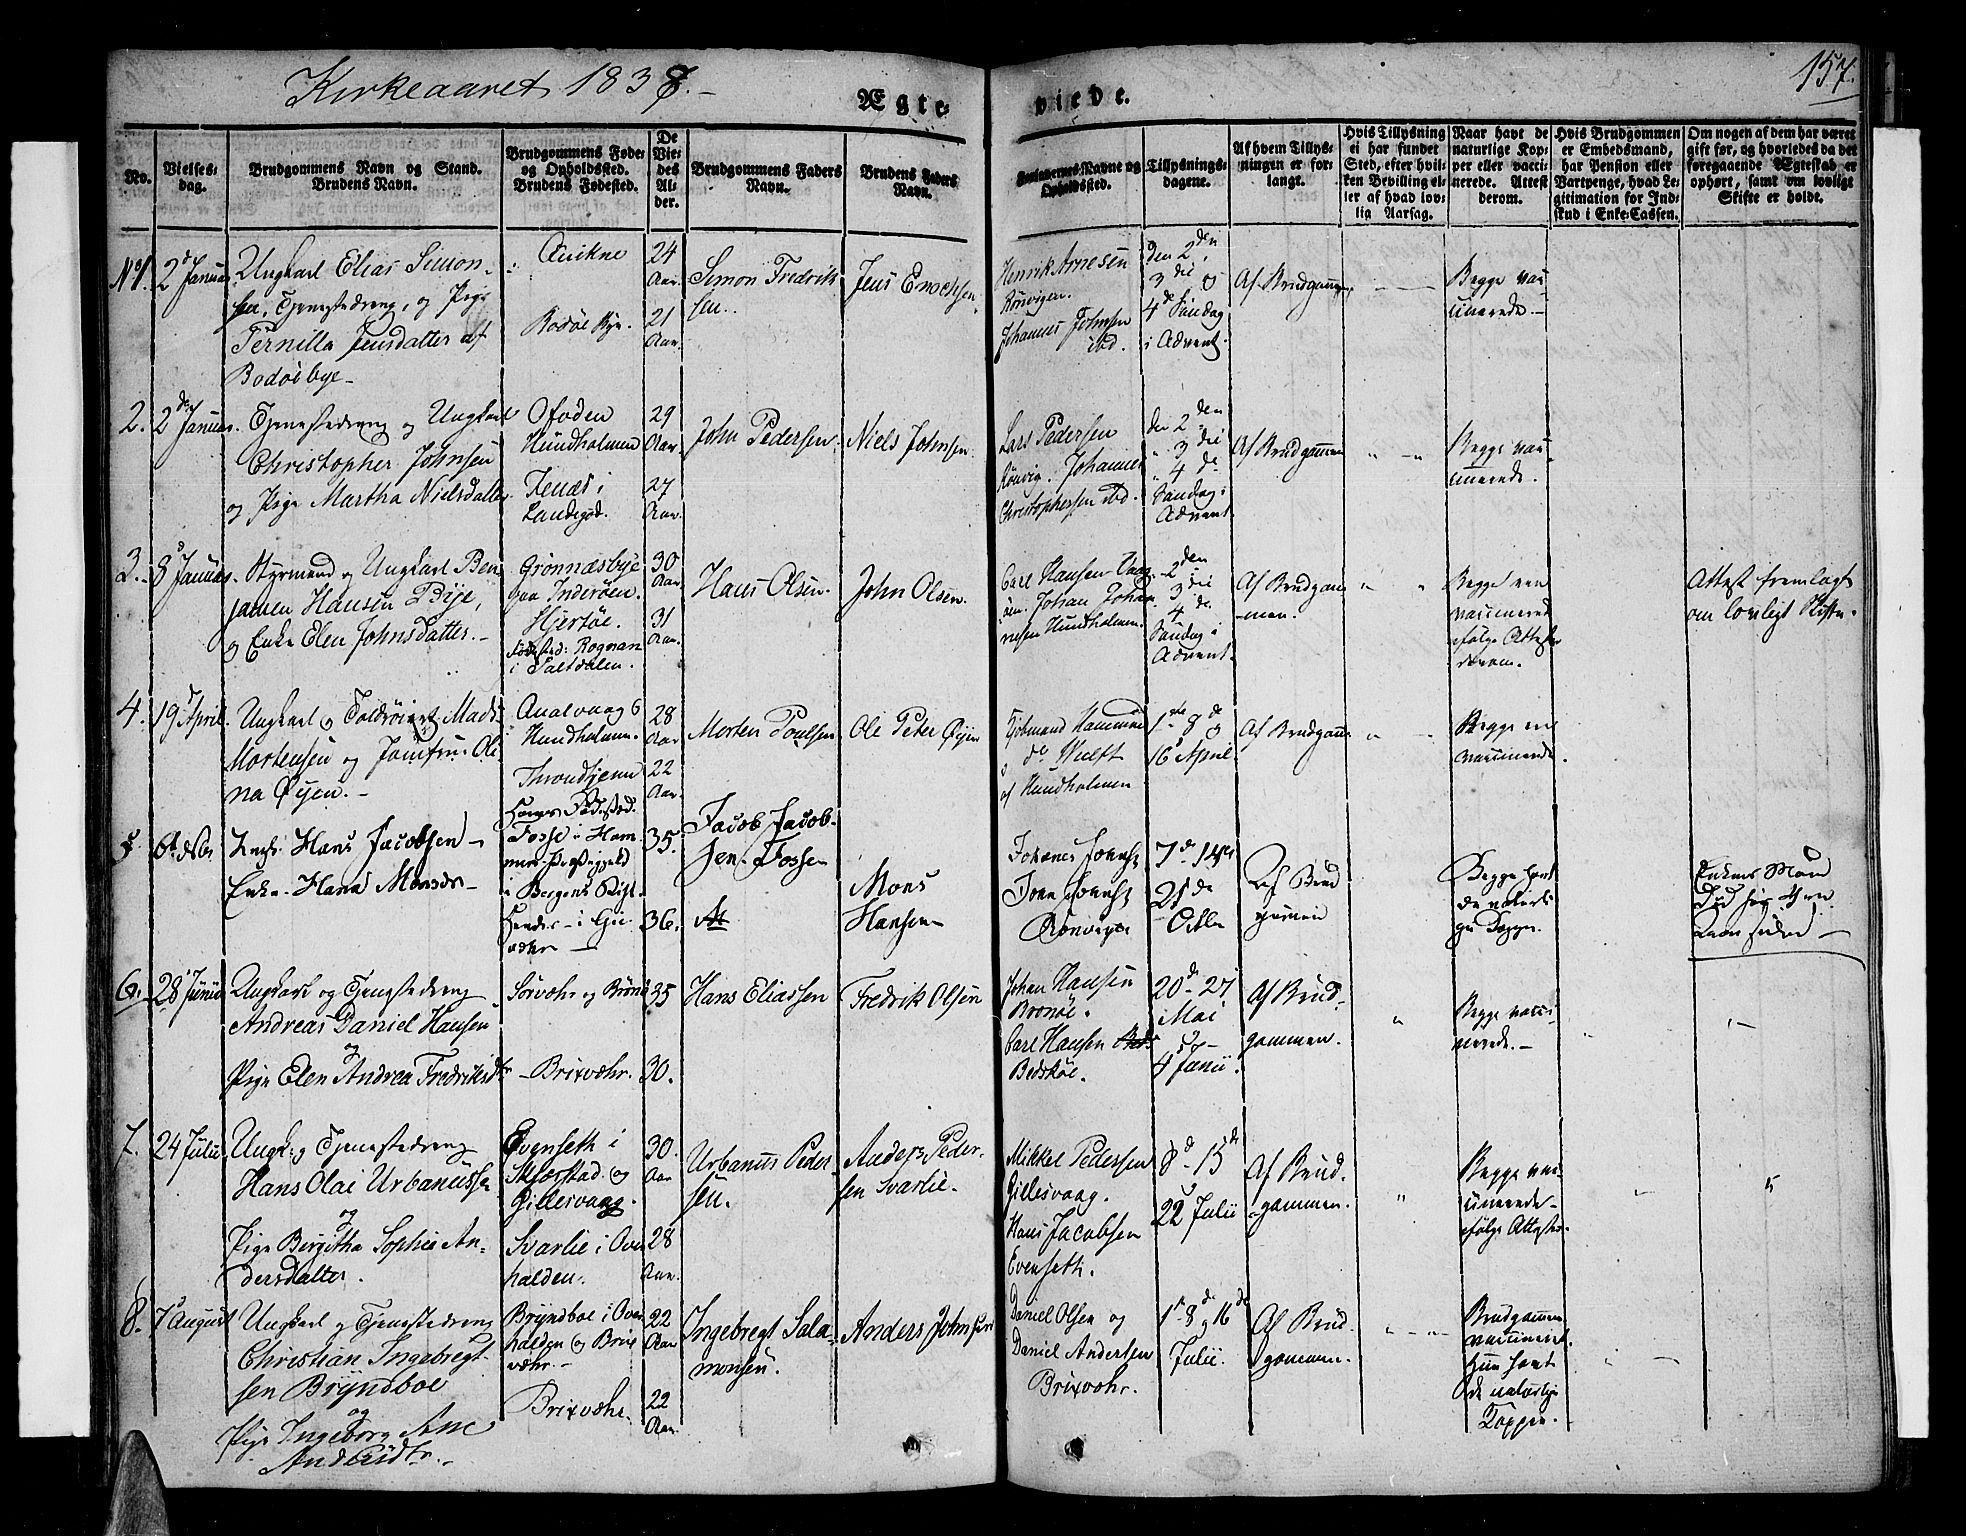 Kirkeaaret 1838.-
Ægte-
viede.
157.
No.
Vielses-
dag.
Brudgommens Navn og Stand.
Brudens Navn.
Brudgommens Føde-
og Opholdssted.
Brudens Fødested.
De
Vie-
des
Al-
der.
Brudgommens Faders
Navn.
Brudens Faders
Navn.
Forlovernes Navne og
Opholdssted.
Tillysnings-
dagene.
Af hvem Tillys-
ningen er for-
langt.
Hvis Tillysning
ei har fundet
Sted, efter hvil-
ken Bevilling el-
ler af hvad lov-
lig Aarsag.
Naar havt de
naturlige Kop-
per eller vacci-
nerede. Attest
derom.
Hvis Brudgommen
er Embedsmand,
har Pension eller
Vartpenge, hvad Le-
gitimation for Ind-
skud i Enke-Cassen.
Om nogen af dem har været
gift før, og hvorledes da det
foregaaende Ægtestad er
ophørt, samt om lovligt
Skifte er holdt.
No 1.
2d Januar
Ungkarl Elias Simon-
sen, Tjenestedreng, og Pige
Pernilla Jensdatter af
Bodøebye-
Qvikne
Bodøe Bye.
24
Aar.
21
Aar.
Simon Fredrik
sen.
Jens Enochsen
Henrik Arnesen
Rönvigen.
Johannes Johnsen
ibd.
den 2den
3die og
4de Søndag
i Advent.
Af Brudgommen
Begge vac-
cinerede.-
2.
2den Januar.
Tjenestedreng og Ungkarl
Christopher Johnsen
og Pige Martha Nielsdatter
Ofoden
Hundholmen
Fenæs i
Landegod.
29
Aar.
27
Aar.
John Pedersen.
Niels Johnsen
Lars Pedersen
Rönvig. Johannes
Christophersen ibd.
den 2den
" 3die
" 4de
Søndag i
Advent
Af Brudgommen
Begge vac-
cinerede.
3.
8d Januar.
Styrmand og Ungkarl Ben
jamen Hansen Bije,
og Enke Elen Johnsdatter.-
Grønnæsbye
paa Inderöen.
Hjertøe.
Födested: Rognan
i Saltdalen.
30
Aar
31
Aar.
Hans Olsen.
John Olsen.
Carl Hansen Vaag-
öen. Johan Johan
nesen Hundholmen.
2den
3die
4de
Søndag i
Advent.
Af Brudgom
-men.
Begge ere
vaccinerede
ifølge Attester
derom.
Attest fremlagt
om lovligt Skifte.
4.
19d April.
Ungkarl og Toldröiert Mads
Mortensen og Jomfrue Oli
na Öyen.-
Aualvaag
i Hundholmen.
Throndhjem
28
Aar
22
Aar.
Morten Poulsen
Ole Peter Öyen
Kjøbmand Hammer
og de Wulft
af Hundholmen
1ste 8de og
16d April
Af Brudgom-
Begge ere
vaccinerede.
5
Hans Jacobsen
Enke. Hana Monsdr-
Fosse i Ham
mer Præstegjeld
i Bergens Stift.
35.
36.
Jacob Jacob-
sen-Fossen
Mons
Hansen-
Johanes
Rönvigen
7de 14de
21de
Octbr
Af Brud
gomen
Begge havt
de naturli
ge Kopper.
Enkens Mand
Død
Aar siden-
6.
28d Junii
Ungkarl og Tjenestedreng
Andreas Daniel Hansen
og
Pige Elen Andrea Fredriksdtr
Sörvær og Bronö
-Brixvær.
35
30.
Hans Eliassen
Fredrik Olsen
Johan Hansen
Bronöe.
Carl Hansen
Bedsköe.
20de 27
Mai
og
4d Junii.
Af Brud-
gommen.
Begge vacci-
nerede.-
7.
24 Julii
Ungk. og Tjenestedreng
Hans Olai Urbanussen
og
Pige Bergitha Sophie An-
dersdatter.
Evenseth i
Skjerstad og
Gillesvaag.
Svarlie i Over
halden.
30.
Aar
28
Aar.
Urbanus Peder
sen.
Anders Peder-
sen Svarlie.
Mikkel Pedersen
Gillesvaag.
Hans Jacobsen
Evenseth.
8de 15de
22 Julii
Af Brud
-gommen.
Begge vac-
cinerede
ifølge Attester.
8.
7d August
Ungkarl og Tjenestedreng
Christian Ingebregt-
sen Bryndboe
og
Pige Ingeborg Ane
Andersdtr.-
Bryndboe i Over
halden og Brix
vær.-
Brixvær.
22
Aar
22
Aar.
Ingebregt Sala-
monsen.
Anders Johnsen
Daniel Olsen og
Daniel Andersen
Brixvær.
1ste 8de og 16de
Julii.
Af Brud-
gommen.
Brudgommen
vaccineret
Hun havt
de naturlige
Kopper.